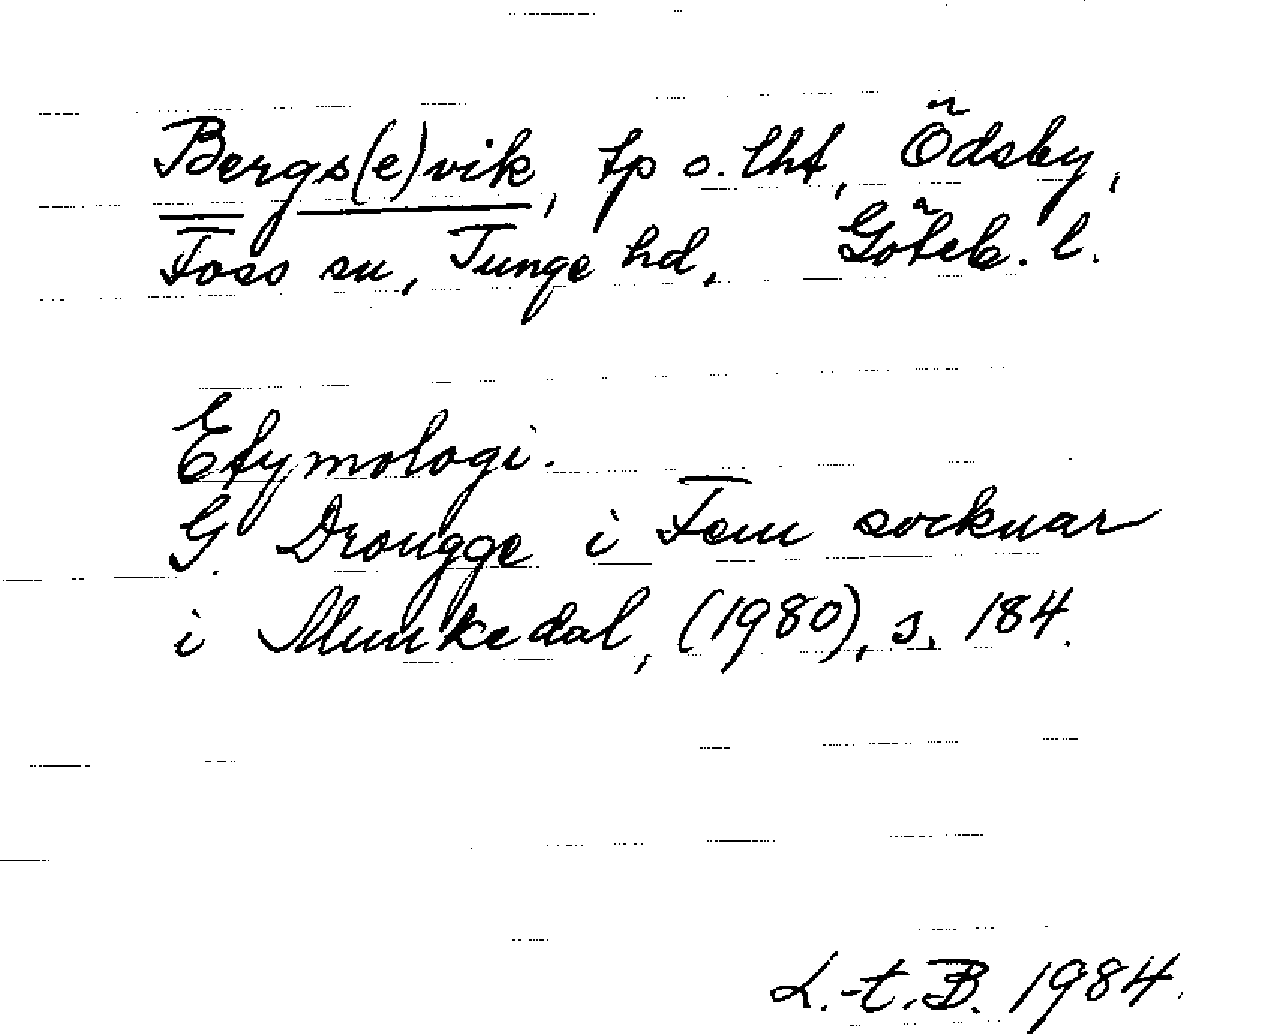 Bergs(e)vik, tp o. lht, Ödsby,
Foss sn, Tunge hd, Göteb. l.
Etymologi.
G. Drougge i Fem socknar
i Munkedal, (1980), s. 184.
L.-t. B. 1984.